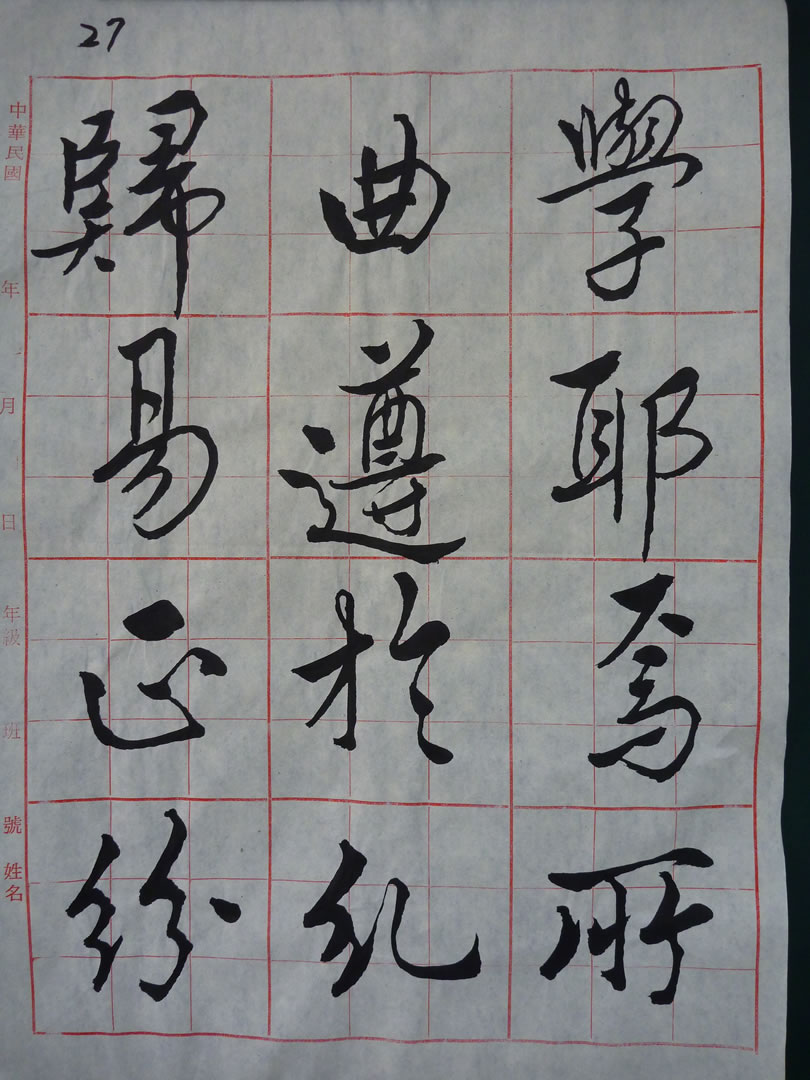 27
歸曲學
易遵耶
正於焉
紛糺所
中華民國 年 月 日 年級 班 號 姓名